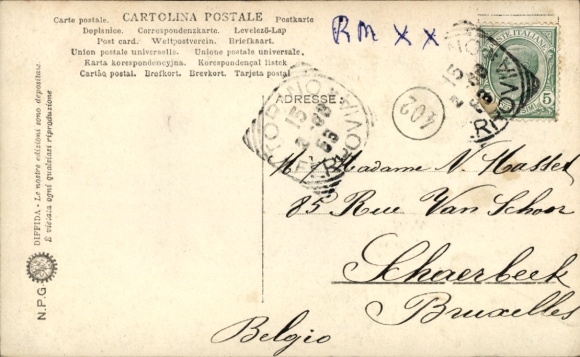 Carte postale. CARTOLINA POSTALE Postkarte
Dopisnice. Correspondenzkarte. Levelező-Lap
Post card. Weltpostverein. Briefkaart.
Union postale universelle. Unione postale universale.
Karta korespondencyjna. Korespondenčni listek
Cartão postal. Brefkort. Brevkort. Tarjeta postal
RM XX
POSTE ITALIANE
5
TORINO
FERROVIA
ADRESSE:
TORINO
FERROVIA
402
M. Madame N. Hasset
85 Rue Van Schoor
Schaerbeek
Bruxelles
Belgio
DIFFIDA - Le nostre edizioni sono depositate.
È vietata ogni qualsiasi riproduzione
N.P.G.